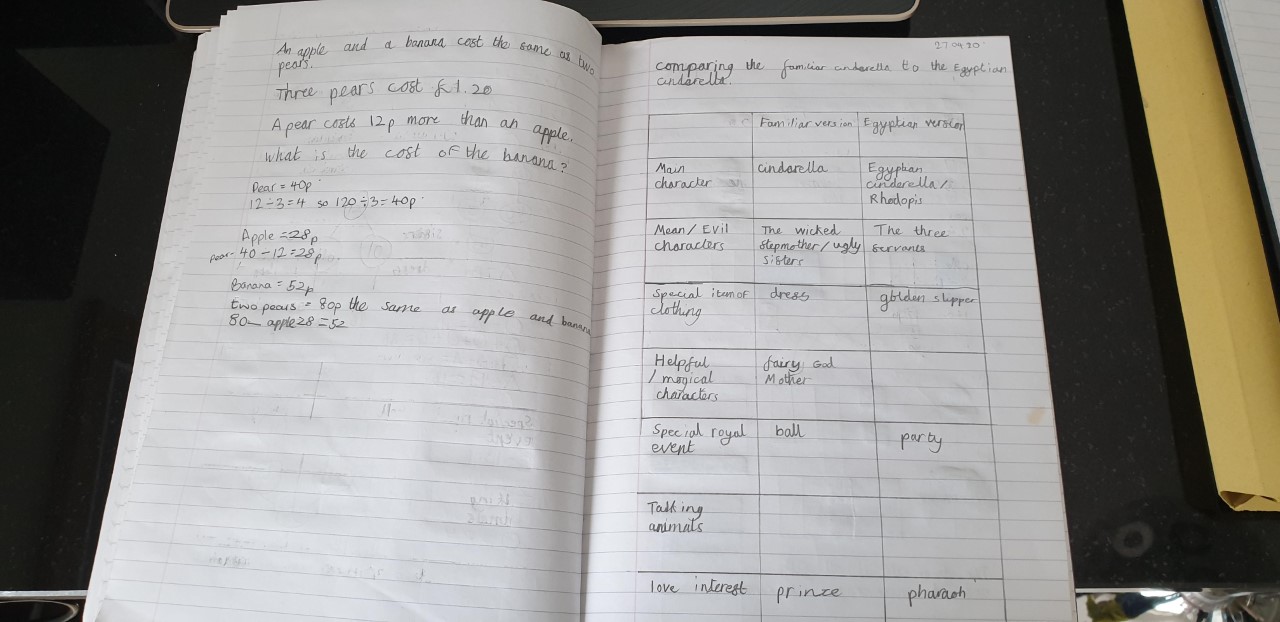 An apple and a banana cost the same as two
pears.
Three pears cost £1.20
A pear costs 12p more than an apple.
What is the cost of the banana?
Pear = 40p
12÷3=4 so 120÷3=40p
Apple =28p
pear- 40 -12=28p
Banana = 52p
two pears = 80p the same as apple and banana
80- apple28 =52
27 04 20
comparing the familiar cinderella to the Egyptian
cindarella.
Familiar version Egyptian version
Main character
cindarella
Egyptian
cinderella /
Rhodopis
Mean/ Evil
characters
The wicked
stepmother/ ugly
sisters
The three
servants
Special item of
clothing
dress
golden slipper
Helpful
/ magical
characters
fairy God
Mother
Special royal
event
ball
party
Talking
animals
love interest
prince
pharaoh